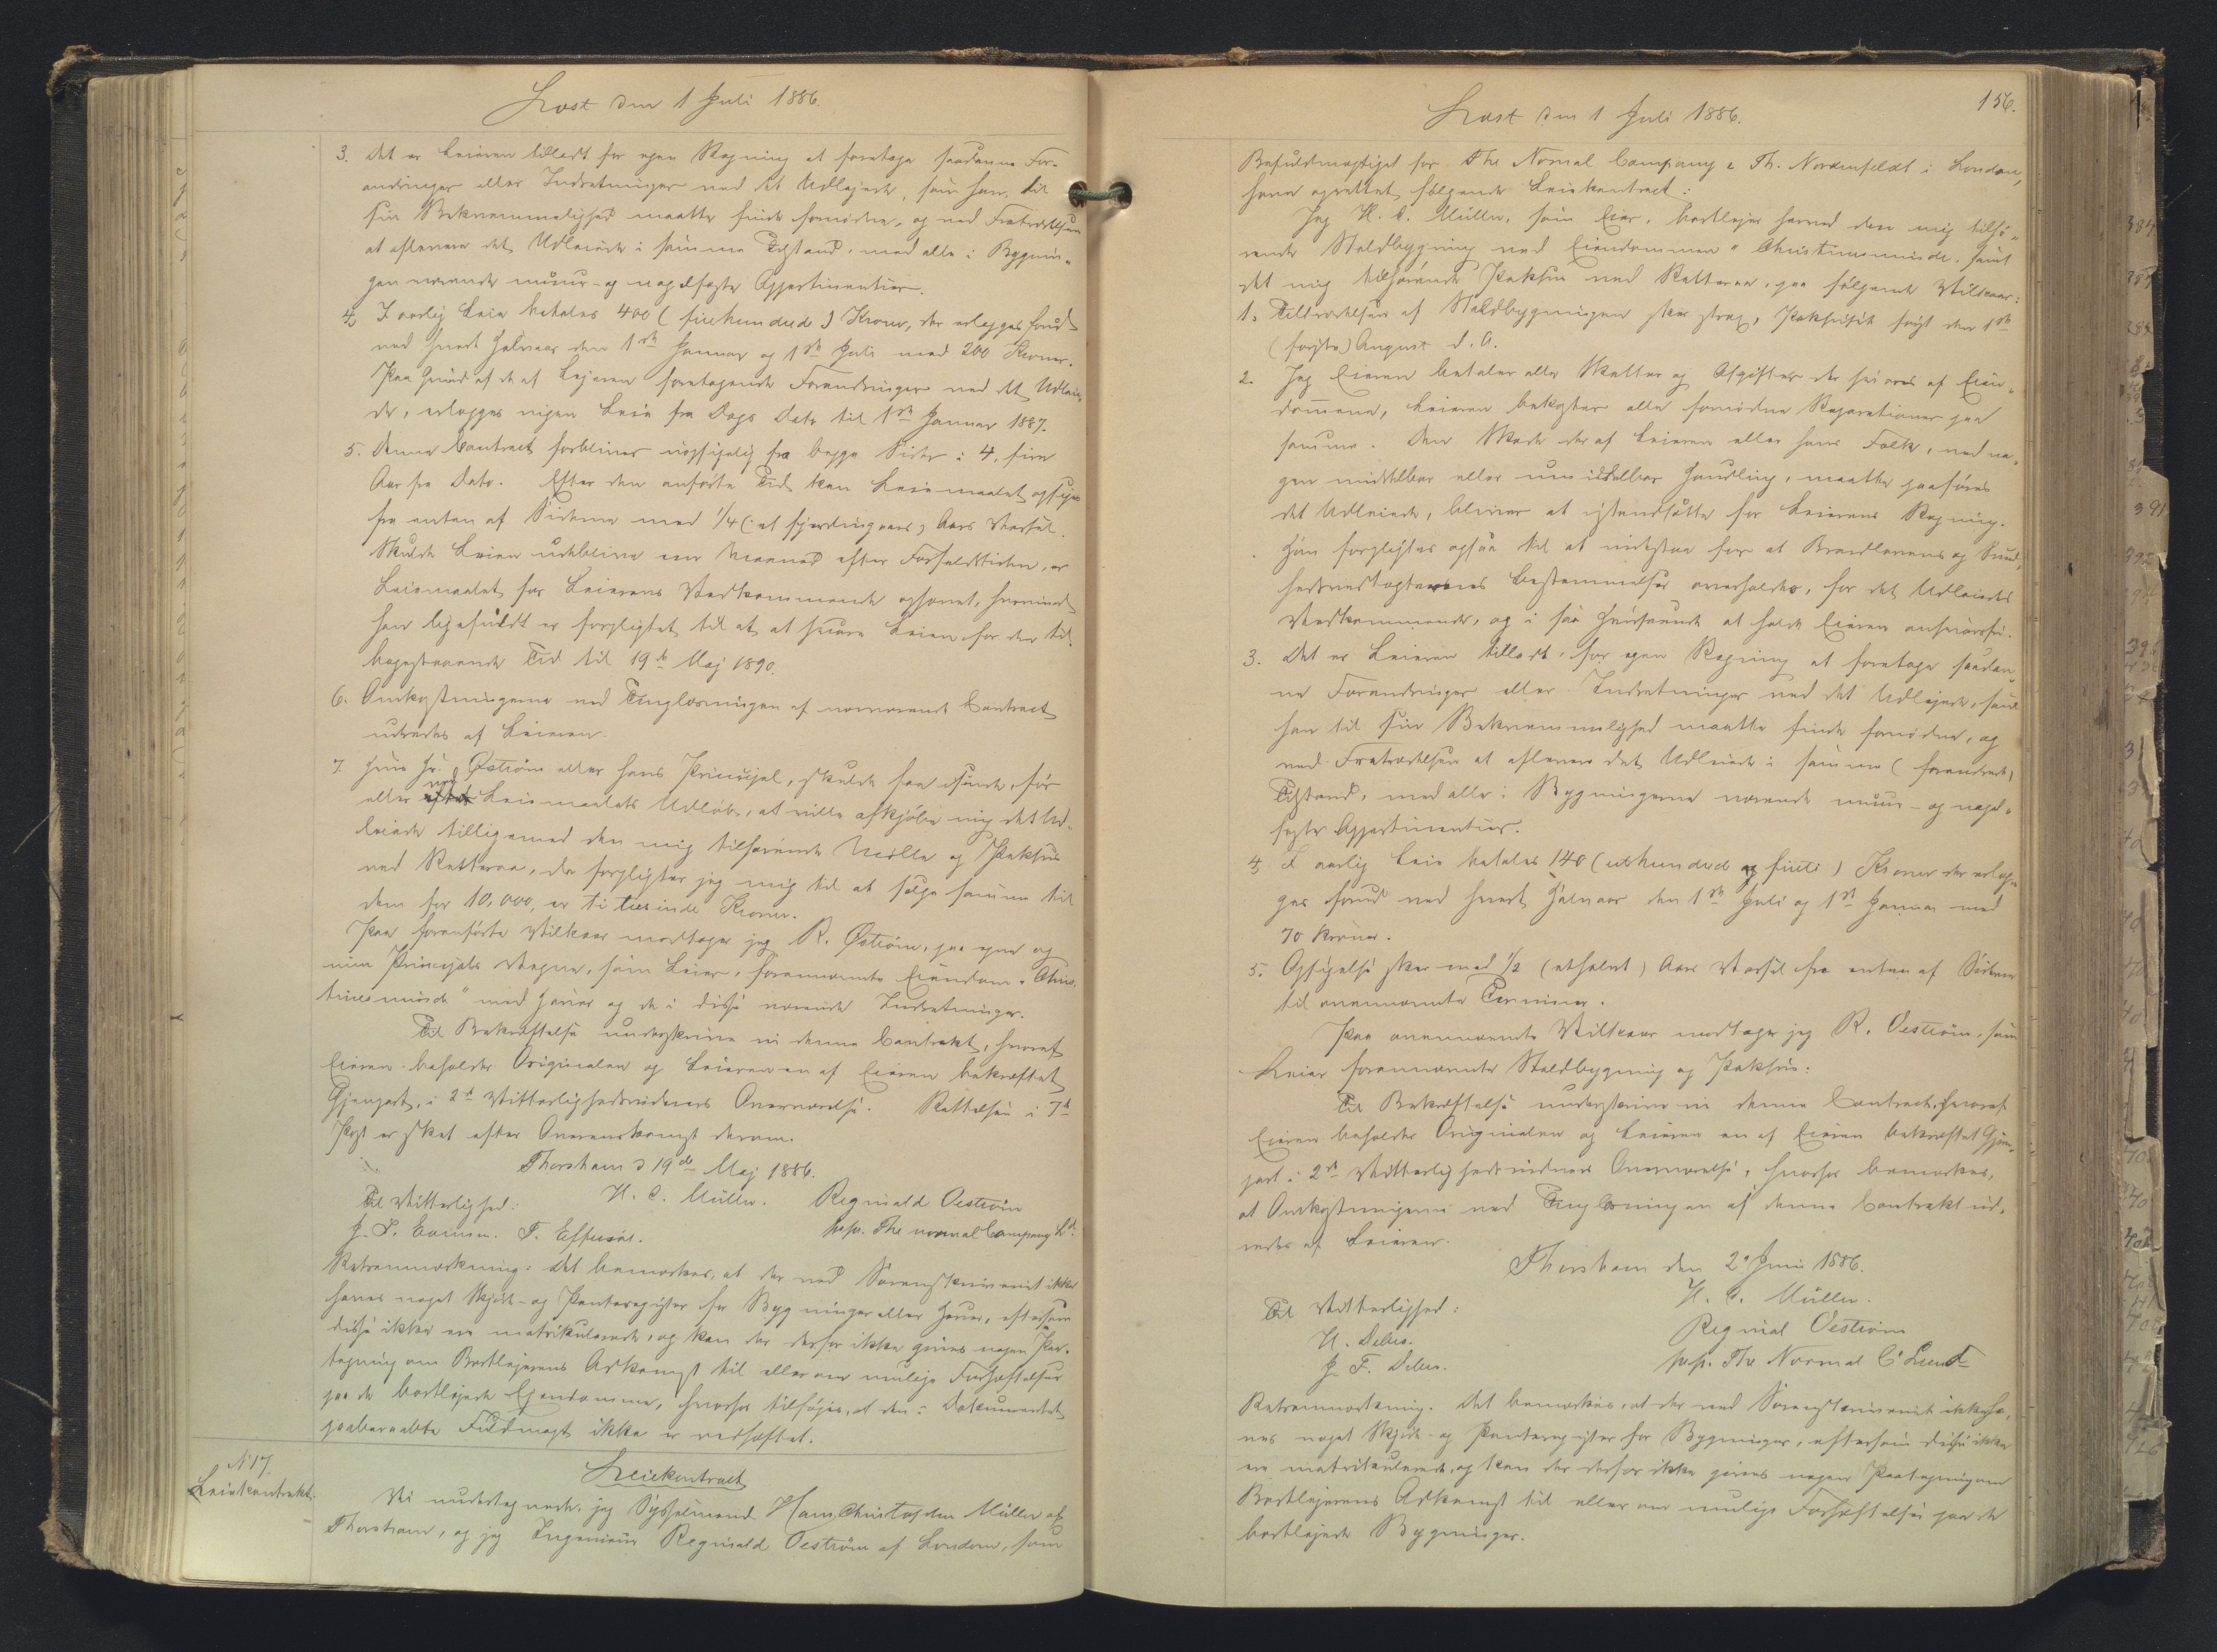 Læst den 1 Juli 1886.
3. Det er Leieren tilladt for egen Regning at foretage saadanne For-
andringer eller Indretninger ved det Udlejede, som han til
sin Bekvemmelighed maatte finde fornødne, og ved Fratrædelsen
at aflevere det Udleiede i samme Tilstand, med alle i Bygnin-
gen værende muur- og nagelfaste Appertinentier.
4. I aarlig Leie betales 400 (firehundred) Kroner, der erlægges forud
ved hvert Halvaar den 1ste Januar og 1ste Juli med 200 Kroner.
Paa Grund af de af Lejeren foretagende Forandringer ved det Udleie-
de, erlægges ingen Leie fra Dags Dato til 1ste Januar 1887.
5. Denne Contract forbliver uopsigelig fra begge Sider i 4, fire
Aar fra Dato. Efter den anførte Tid kan Leiemaalet opsiges
fra enten af Siderne med 1/4 (et fjerdingaars) Aars Varsel.
Skulde Leien udeblive een Maaned efter Forfaldstiden, er
Leiemaalet for Leierens Vedkommende ophævet, hvorimod
han ligefuldt er forpligtet til at svare Leien for den til-
bagestaaende Tid til 19de Maj 1890.
6. Omkostningerne ved Tinglæsningen af nærværende Contract
udredes af Leieren.
7. Hvis Hr. Østrøm eller hans Principal, skulde faa isinde, før
eller ved Leiemaalets Udløb, at ville afkjøbe mig det Ud-
leiede tilligemed den mig tilhørende Mølle og Pakhus
ved Retteraa, da forpligter jeg mig til at sælge samme til
dem for 10,000, er ti tusinde Kroner.
Paa foranførte Vilkaar modtager jeg R. Østrøm, paa egne og
min Principals Vegne, som Leier, forannævnte Eiendom "Chris-
tinesminde" med Haver og de i disse værende Indretninger.
Til Bekræftelse underskrive vi denne Contrakt, hvoraf
Eieren beholder Originalen og Leieren en af Eieren bekræftet
Gjenpart, i 2de Vitterlighedsvidners Overværelse. Rettelsen i 7de
Post er sket efter Overenskomst derom.
Thorshavn d 19de Maj 1886.
Til Vitterlighed: H. C. Müller. Reginald Oestrøm
p.p. The normal Company Ld.
Retsanmærkning: Det bemærkes, at der ved Sorenskriveriet ikke
haves noget Skjøde- og Panteregister for Bygninger eller Haver, eftersom
disse ikke ere matrikulerede, og kan der derfor ikke gives nogen Paa-
tegning om Bortlejerens Adkomst til eller om mulige Forhæftelser
paa de bortlejede Ejendomme, hvorhos tilføjes, at den i Dokumentet
paaberaabte Fuldmagt ikke er vedhæftet.
N 17.
Leiekontrakt.
Leiekontract
Vi undertegnede, jeg Sysselmand Hans Christopher Müller af
Thorshavn, og jeg Ingeniør Reginald Oestrøm af London, som
156.
Læst den 1 Juli 1886.
Befuldmægtiget for The Normal Company & Th. Nordenfeldt i London,
have oprettet følgende Leiekontract:
Jeg H. C. Müller, som Eier, bortlejer herved den mig tilhø-
rende Staldbygning ved Eiendommen "Christinesminde, samt
det mig tilhørende Pakhus ved Retteraa, paa følgende Vilkaar:
1. Tiltrædelsen af Staldbygningen sker strax, Pakhuset først den 1ste
(første) August d. A.
2. Jeg Eieren betaler alle Skatter og Afgifter der svares af Eien-
dommene, Leieren bekoster alle fornødne Reparationer paa
samme. Den Skade der af Leieren eller hans Folk, ved no-
gen middelbar eller umiddelbar Handling, maatte paaføres
det Udleiede, bliver at istandsætte for Leierens Regning.
Han forpligtes ogsaa til at indestaae for at Brandlovens og Sund-
hedsvedtægternes Bestemmelser overholdes, for det Udleiedes
Vedkommende, og i saa Henseende at holde Eieren ansvarsfri.
3. Det er Leieren tilladt, for egen Regning at foretage saadan-
ne Forandringer eller Indretninger ved det Udlejede, som
han til sin Bekvemmelighed maatte finde fornødne, og
ved Fratrædelsen at aflevere det Udleiede i samme (forandrede)
Tilstand, med alle i Bygningerne værende muur- og nagel-
faste Appertinentier.
4. I aarlig Leie betales 140 (ethundred og firti) Kroner der erlæg-
ges forud ved hvert Halvaar den 1ste Juli og 1st Januar med
70 Kroner.
5. Opsigelse sker med 1/2 (et halvt) Aars Varsel fra enten af Siderne
til ovennævnte Terminer.
Paa ovennævnte Vilkaar modtager jeg R. Oestrøm, som
Leier forannævnte Staldbygning og Pakhus:
Til Bekræftelse underskrive vi denne Contract, hvoraf
Eieren beholder Originalen og Leieren en af Eieren bekræftet Gjen-
part i 2de Vitterlighedsvidners Overværelse, hvorhos bemærkes,
at Omkostningerne ved Tinglæsningen af denne Contrakt ud-
redes af Leieren.
Thorshavn den 2 Juni 1886.
Til Vitterlighed: H. C. Müller.
H. Debes. Reginal Oestrøm
J. F. Debes. p.p. The Normal Co
Retsanmærkning. Det bemærkes, at der ved Sorenskriveriet ikke ha-
ves noget Skjøde- og Panteregister for Bygninger, eftersom disse ikke
ere matrikulerede, og kan der derfor ikke gives nogen Paategning om
Bortlejerens Adkomst til eller om mulige Forhæftelser paa de
bortlejede Bygninger.